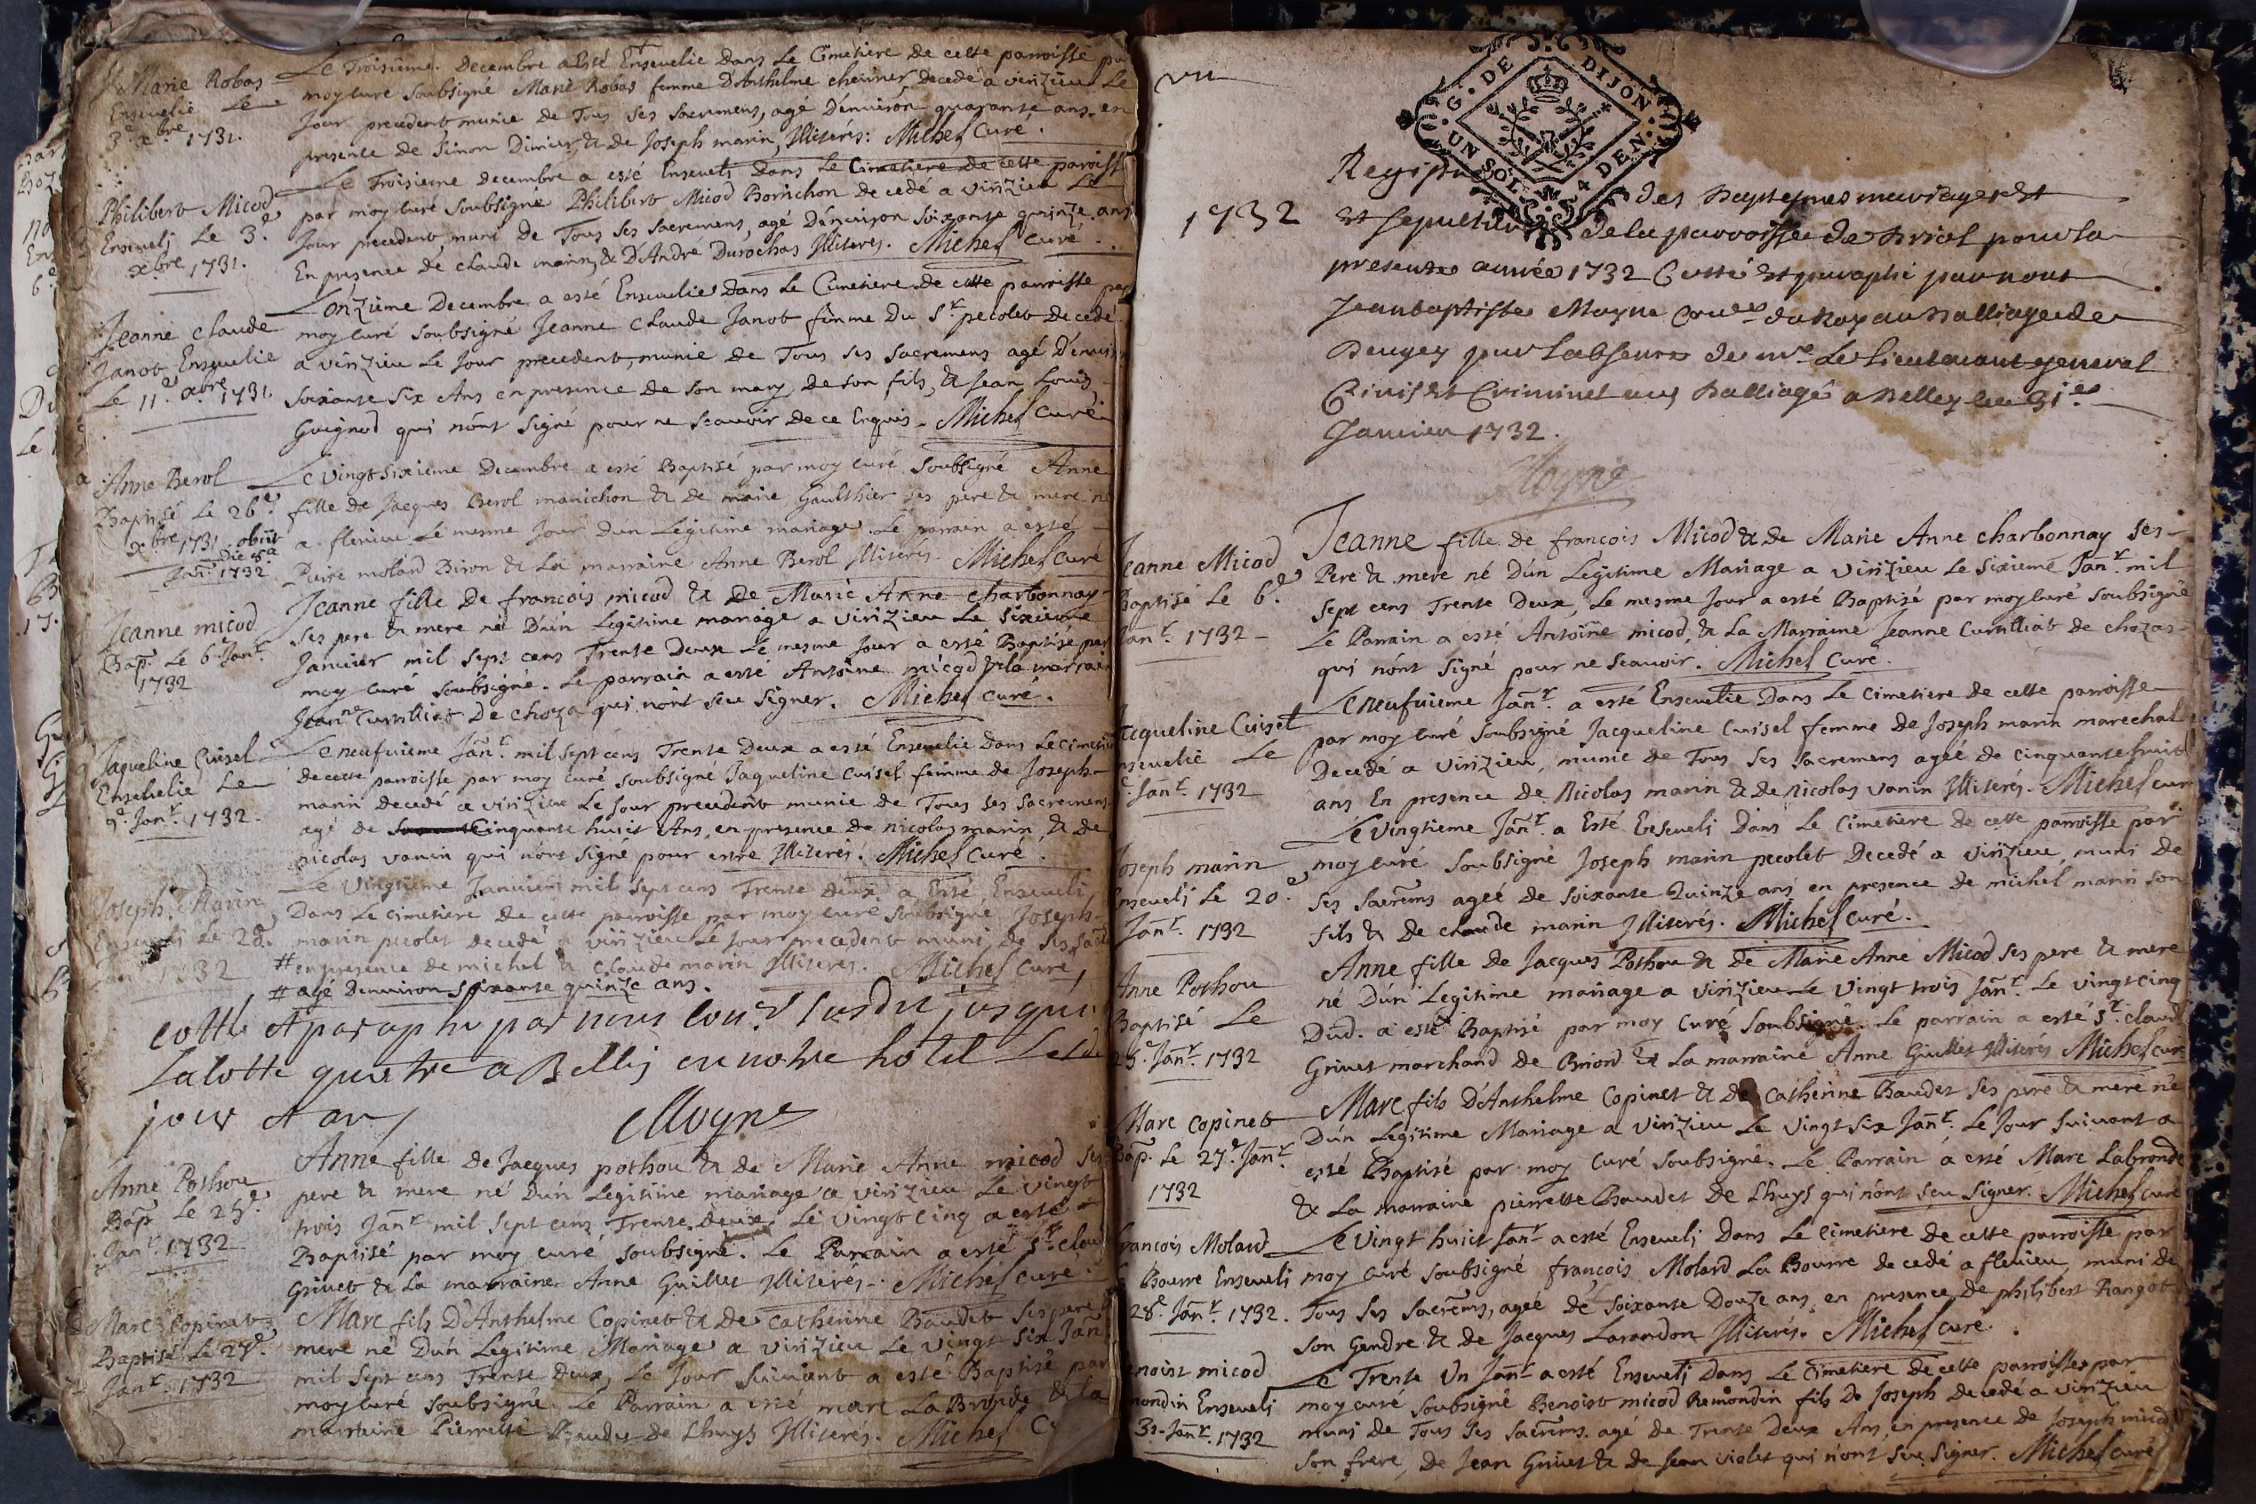 Marie Robas
Ensevelie Le
3.e xbre 1731.
Le Troisième Decembre a Esté Ensevelie Dans Le Cimetiere de cette parroisse
moy curé soubsigné Marie Robas femme D'Anthelme decedé a virizieu Le
Jour precedent munie de Tous ses sacremens, agé D'environ quarante ans. en
presence de Simon Dimier & de Joseph marin, Illiterés: Michel Curé.
Philibert Micod
Enseveli Le 3.e
xbre 1731.
Le Troisieme decembre a esté Enseveli Dans Le Cimetiere de cette parroisse
par moy curé soubsigné Philibert Micod Bornichon decedé a virizieu Le
Jour precedent, muni de Tous ses sacremens, agé D'environ soixante quinze ans
En presence de claude marin, & D'André Durochas Illiterés. Michel curé.
Jeanne claude
Janot Ensevelie
Le 11.e xbre 1731.
L'onzième Decembre a esté Ensevelie Dans Le Cimetiere de cette parroisse par
moy curé soubsigné Jeanne Claude Janot femme Du Sr. pecolet decedé
a virizieu Le Jour precedent, munie de Tous ses sacremens agé D'environ
soixante six Ans en presence de son mary, de son fils, & Jean Louis
Guignod qui n'ont signé pour ne scavoir de ce Enquis. Michel curé
Anne Berol
Baptisé Le 26.e
xbre 1731. obiit
Die 8a
Janr. 1732
Le vingt sixieme Decembre a esté Baptisé par moy curé soubsigné Anne
fille de Jacques Berol manichon & de marie Gaulthier ses pere & mere né
a flevieu Le mesme Jour d'un Legitime mariage. Le parrain a esté
molard Biron & La marraine Anne Berol Illiterés. Michel Curé
Jeanne micod
Bap. Le 6e Janr.
1732
Jeanne fille De francois micod & De Marie Anne charbonnay
ses pere & mere né D'un Legitime mariage a virizieu Le sixieme
Janvier mil sept cens Trente Deux Le mesme Jour a esté Baptisé par
moy curé soubsigné. Le parrain a esté Antoine micod & la marraine
Jeanne Curtilliat De choza qui n'ont seu signer. Michel curé.
Jaqueline Cuisel
Ensevelie Le
9.e Janr. 1732.
Le neufvieme Janr. mil sept cens Trente Deux a esté Ensevelie Dans Le Cimetiere
de cette parroisse par moy curé soubsigné Jaqueline Cuisel femme de Joseph
marin decedé a virizieu Le Jour precedent munie de Tous ses sacremens
agé de Cinquante huict Ans, en presence de nicolas marin & de
nicolas vanin qui n'ont signé pour estre Illiterés. Michel Curé.
Joseph Marin
Enseveli Le 20.e
Janr. 1732
Le vingtieme Janvier mil sept cens Trente deux a Esté Enseveli
Dans Le Cimetiere de cette parroisse par moy curé soubsigné Joseph
marin pecolet decedé a virizieu Le Jour precedent muni de ses
# en presence de michel & Claude marin Illiterés. Michel Curé
# agé D'environ soixante quinze ans.
cotté et paraphé par nous susdit jusques
La cotte quatre a Belley en notre hôtel Les
jour et an Moyne
Anne Pothou
Bap. Le 25.e
Janr. 1732
Anne fille de Jacques pothou & de Marie Anne micod ses
pere & mere né D'un Legitime mariage a virizieu Le vingt
trois Janr. mil sept cens Trente Deux Le vingt cinq a esté
Baptisé par moy curé soubsigné. Le Parrain a esté Sr. claude
Grivet & La marraine Anne Guillet Illiterés. Michel curé.
Marc Copinet
Baptisé Le 27.e
Janr. 1732
Marc fils D'Anthelme Copinet & de Catherine Baudet ses pere &
mere né D'un Legitime Mariage a virizieu Le vingt six Janr.
mil sept cens Trente Deux, Le Jour suivant a esté Baptisé par
moy curé soubsigné Le Parrain a esté marc La Bronde & La
marraine Pierrette Baudet de Lhuys Illiterés. Michel
G. DE DIJON
UN SOL. 4 DEN.
1732
des Baptesmes mariages Et
Et sepultures de la parroisse de Briol pour la
presente année 1732 Cotté Et paraphé par nous
Jean baptiste Moyne du Roy au Balliage de
Beugey pour Labsence de Le Lieutenant general
Civil Et Criminel aud Balliage a Belley le 31.e
Janvier 1732.
Moyne
Jeanne Micod
Baptisé Le 6.e
Janr. 1732
Jeanne fille de francois Micod & de Marie Anne charbonnay ses
Pere & mere né D'un Legitime Mariage a virizieu Le sixieme Janr. mil
sept cens Trente Deux, Le mesme Jour a esté Baptisé par moy curé soubsigné
Le Parrain a esté Antoine micod, & La Marraine Jeanne Curtilliat de chozas
qui n'ont signé pour ne scavoir. Michel Curé.
Jacqueline Cuisel
Ensevelie Le
Janr. 1732
Le neufvieme Janr. a esté Ensevelie Dans Le Cimetiere de cette parroisse
par moy curé soubsigné Jacqueline Cuisel femme de Joseph marin marechal
Decedé a virizieu, munie de Tous ses sacremens agée de cinquante huict
ans En presence de Nicolas marin & de nicolas vanin Illiterés. Michel curé
Joseph marin
Enseveli Le 20.e
Janr. 1732
Le vingtieme Janr. a Esté Enseveli Dans Le Cimetiere de cette parroisse par
moy curé soubsigné Joseph marin pecolet Decedé a virizieu, muni de
ses sacrems ageé de soixante Quinze ans en presence de michel marin son
fils & De claude marin Illiterés. Michel Curé.
Anne Pothou
Baptisé Le
25.e Janr. 1732
Anne fille de Jacques Pothou & de Marie Anne Micod ses pere & mere
né D'un Legitime mariage a virizieu Le vingt trois Janr. Le vingt cinq
Dud. a esté Baptisé par moy Curé soubsigné. Le parrain a esté Sr. claude
Grivet marchand de Briord & La marraine Anne Guillet Illiterés Michel curé
Marc Copinet
Bap. Le 27.e Janr.
1732
Marc fils D'Anthelme Copinet & de Catherine Baudet ses pere & mere né
D'un Legitime Mariage a virizieu Le vingt six Janr. Le Jour suivant a
esté Baptisé par moy Curé soubsigné. Le Parrain a esté Marc Labronde
& La marraine pierrette Baudet De Lhuys qui n'ont seu signer. Michel curé
francois Molard
La Bourre Enseveli
28.e Janr. 1732.
Le vingt huict Janr. a esté Enseveli Dans Le Cimetiere de cette parroisse par
moy curé soubsigné francois Molard La Bourre decedé a flevieu, muni de
Tous ses sacrems, ageé de soixante Douze ans en presence de philibert Rangot
son gendre & de Jacques Larandon Illiterés. Michel curé.
Benoist micod
Remondin Enseveli
31. Janr. 1732
Le Trente Un Janr. a esté Enseveli Dans Le Cimetiere de cette parroisse par
moy curé soubsigné Benoist micod Remondin fils de Joseph decedé a virizieu
muni de Tous ses sacrems. agé de Trente Deux Ans, en presence de Joseph micod
son frere, de Jean Grivet & de Jean violet qui n'ont seu signer. Michel curé